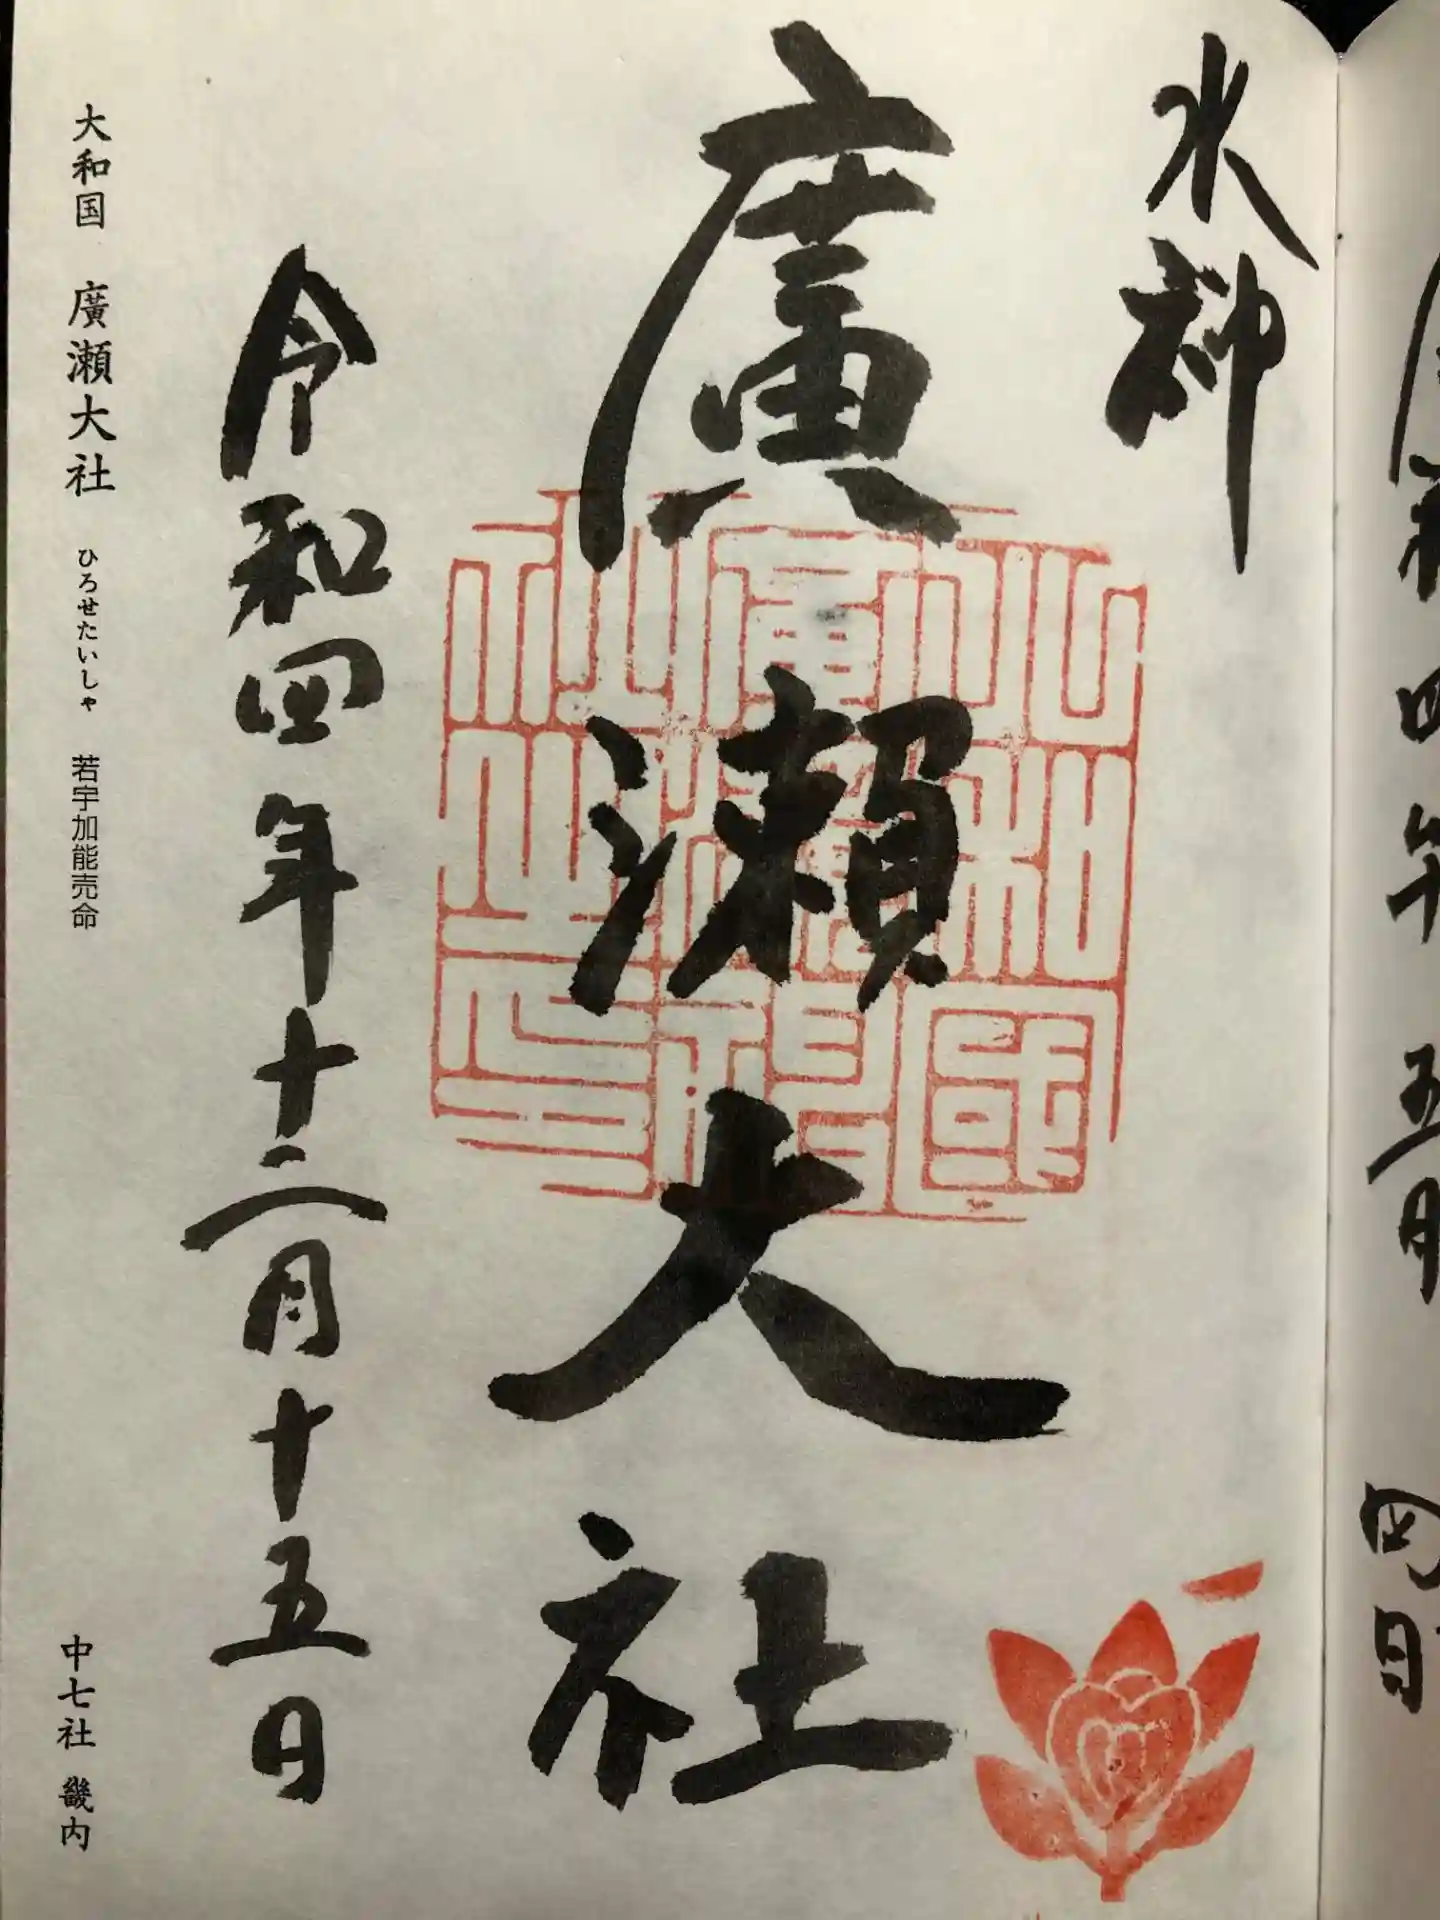 水神
廣瀬大社
令和四年十二月十五日
大和国 廣瀬大社 ひろせたいしゃ 若宇加能売命
中七社 畿内
四年 五月
四日